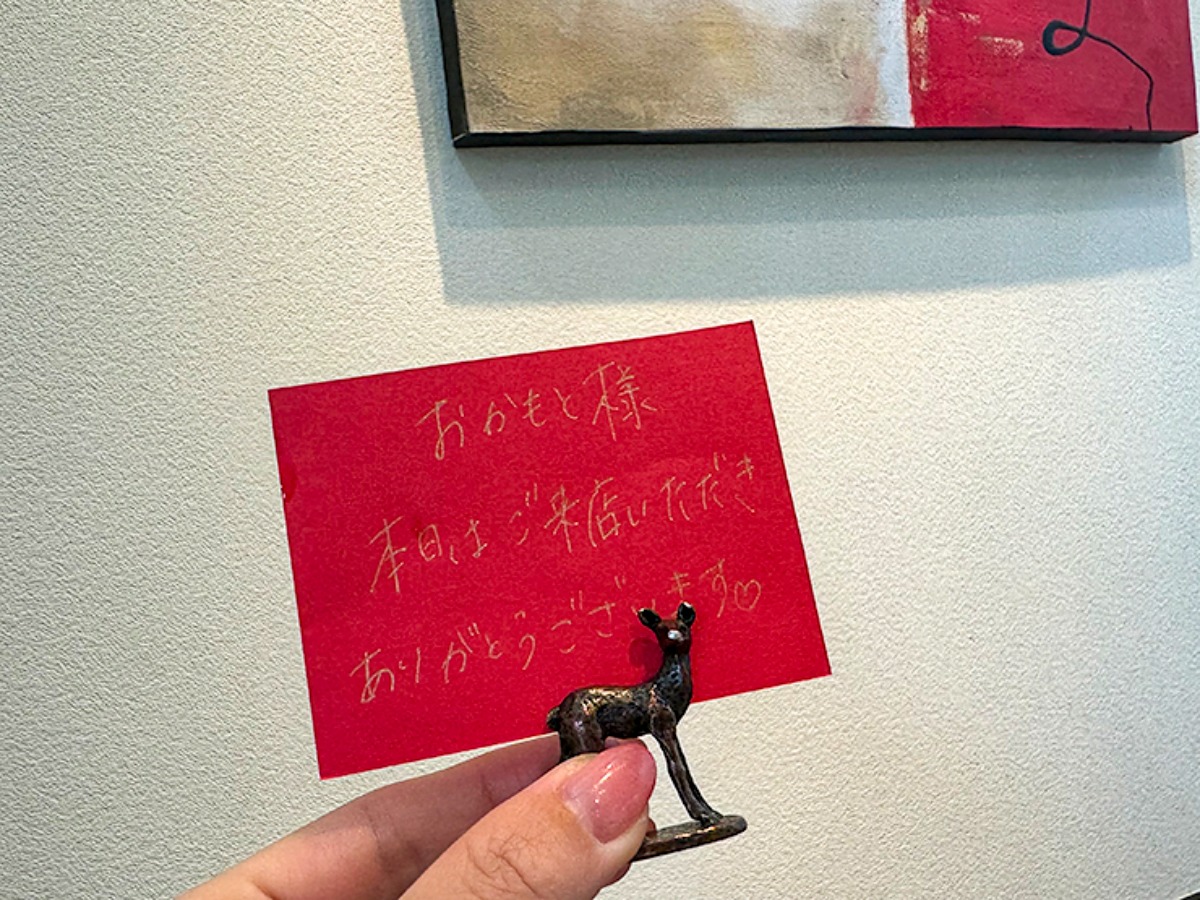 おかもと様
本日はご来店いただき
ありがとうございます♡